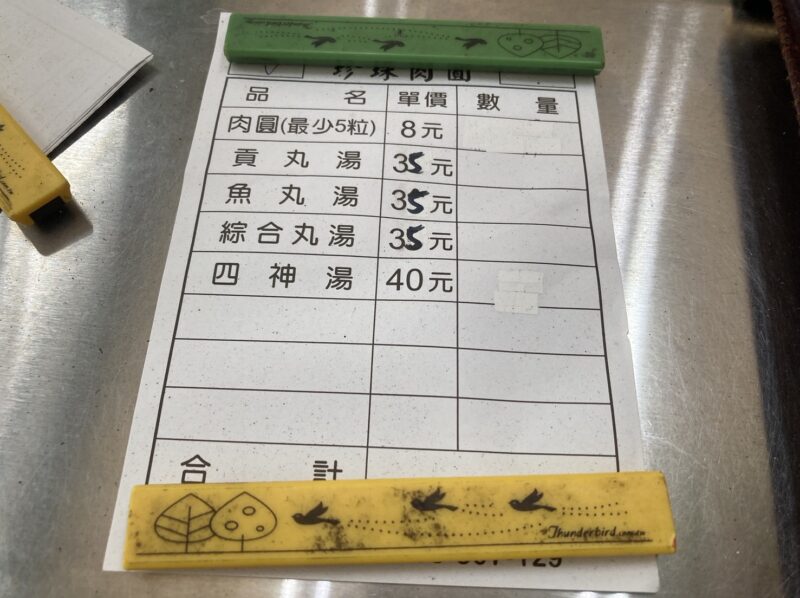 Thunderbird
珍珠肉圓
品名 單價 數量
肉圓(最少5粒) 8元
貢丸湯 35元
魚丸湯 35元
綜合丸湯 35元
四神湯 40元
合計
Thunderbird